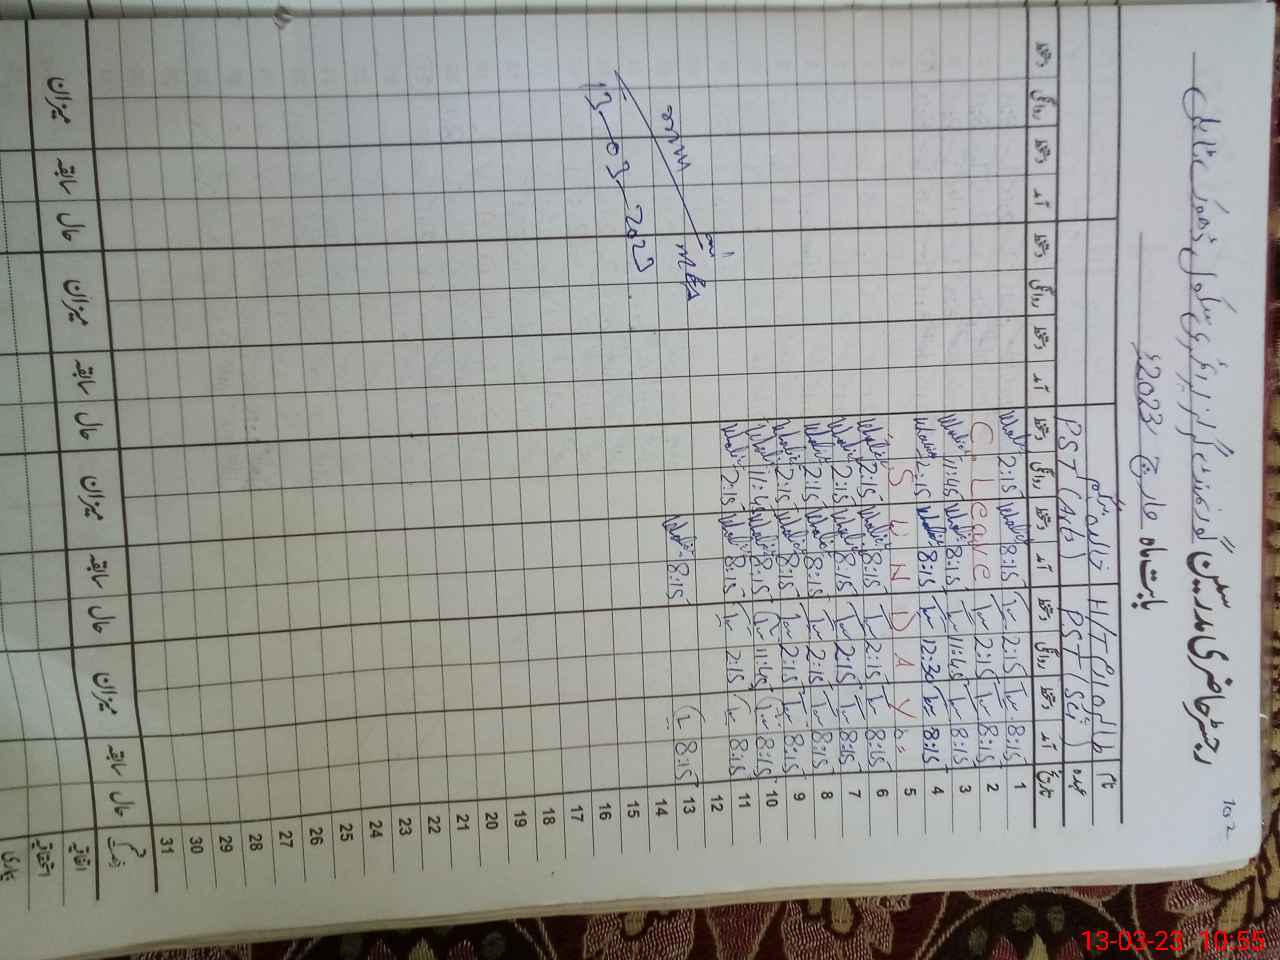 102
رجسٹر حاضری مدرسین گورنمنٹ گرلز پرائمری سکول
بابت ماہ مارچ 2023ء
نام
عہدہ H/T PST (Sci) PST (Arts)
تاریخ آمد دستخط روانگی دستخط آمد دستخط روانگی دستخط آمد دستخط روانگی دستخط آمد دستخط روانگی دستخط
1 8:15 2:15 8:15 2:15
2 8:15 2:15 C. Leave
3 8:15 11:45 8:15 11:45
4 8:15 12:30 8:15 2:15
5 SUNDAY
6 8:15 2:15 8:15 2:15
7 8:15 2:15 8:15 2:15
8 8:15 2:15 8:15 2:15
9 8:15 2:15 8:15 2:15
10 8:15 11:45 8:15 11:45
11 8:15 2:15 8:15 2:15
12
13 8:15 8:15
14
15
16
17
18
19
20
21
22
23
24
25
26
27
28
29
30
31
13-03-2023
حال سابقہ میزان حال سابقہ میزان حال سابقہ میزان حال سابقہ میزان
اتفاقیہ
استحقاقیہ
بیماری
13-03-23 10:55